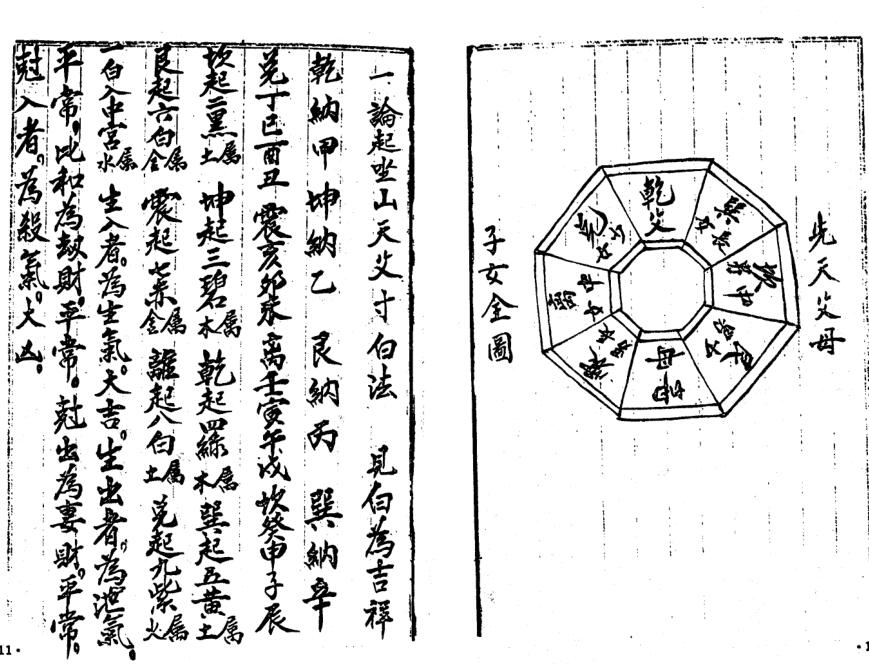 先天父母
乾父
巽長女
坎中男
艮少男
坤母
震長男
离中女
兌少女
子女全圖
一論起坐山天父寸白法 見白為吉祥
乾納甲 坤納乙 艮納丙 巽納辛
兌丁巳酉丑 震亥夘未 离壬寅午戌 坎癸申子辰
坎起二黑属土 坤起三碧属木 乾起四綠属木 巽起五黃属土
艮起六白属金 震起七赤属金 離起八白属土 兌起九紫属火
一白入中宮属水 生入者。為生氣。大吉。生出者。為泄氣。
平常。比和為劫財。平常。尅出為妻財。平常。
尅入者。為殺氣。大凶。
11·